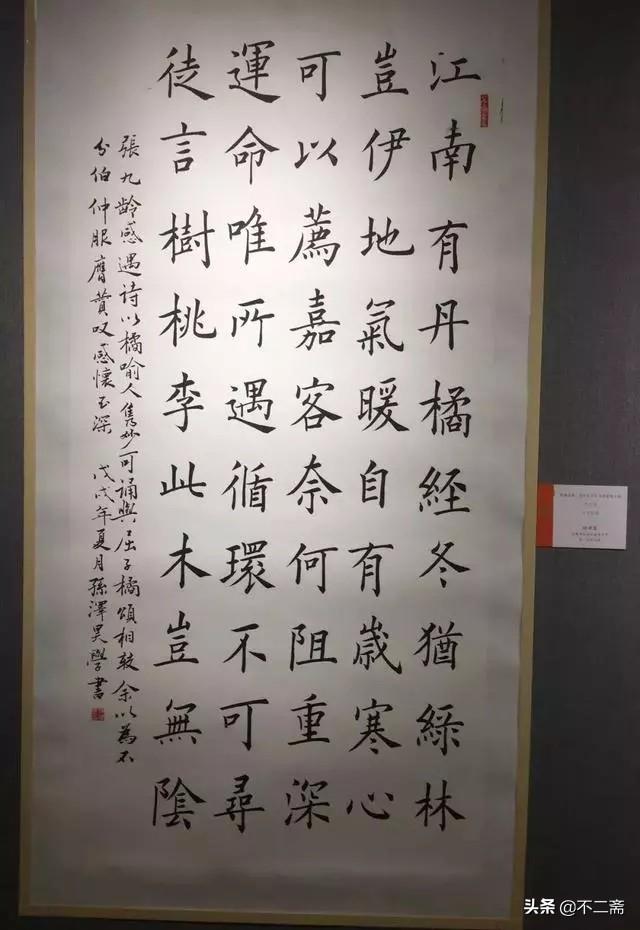 江南有丹橘経冬猶綠林
豈伊地氣暖自有歳寒心
可以薦嘉客奈何阻重深
運命唯所遇循環不可尋
徒言樹桃李此木豈無陰
張九齡感遇诗以橘喻人隽妙可诵與屈子橘頌相較余以為不
分伯仲服膺贊叹感懷至深 戊戌年夏月孫澤昊學書
头条 @不二斋